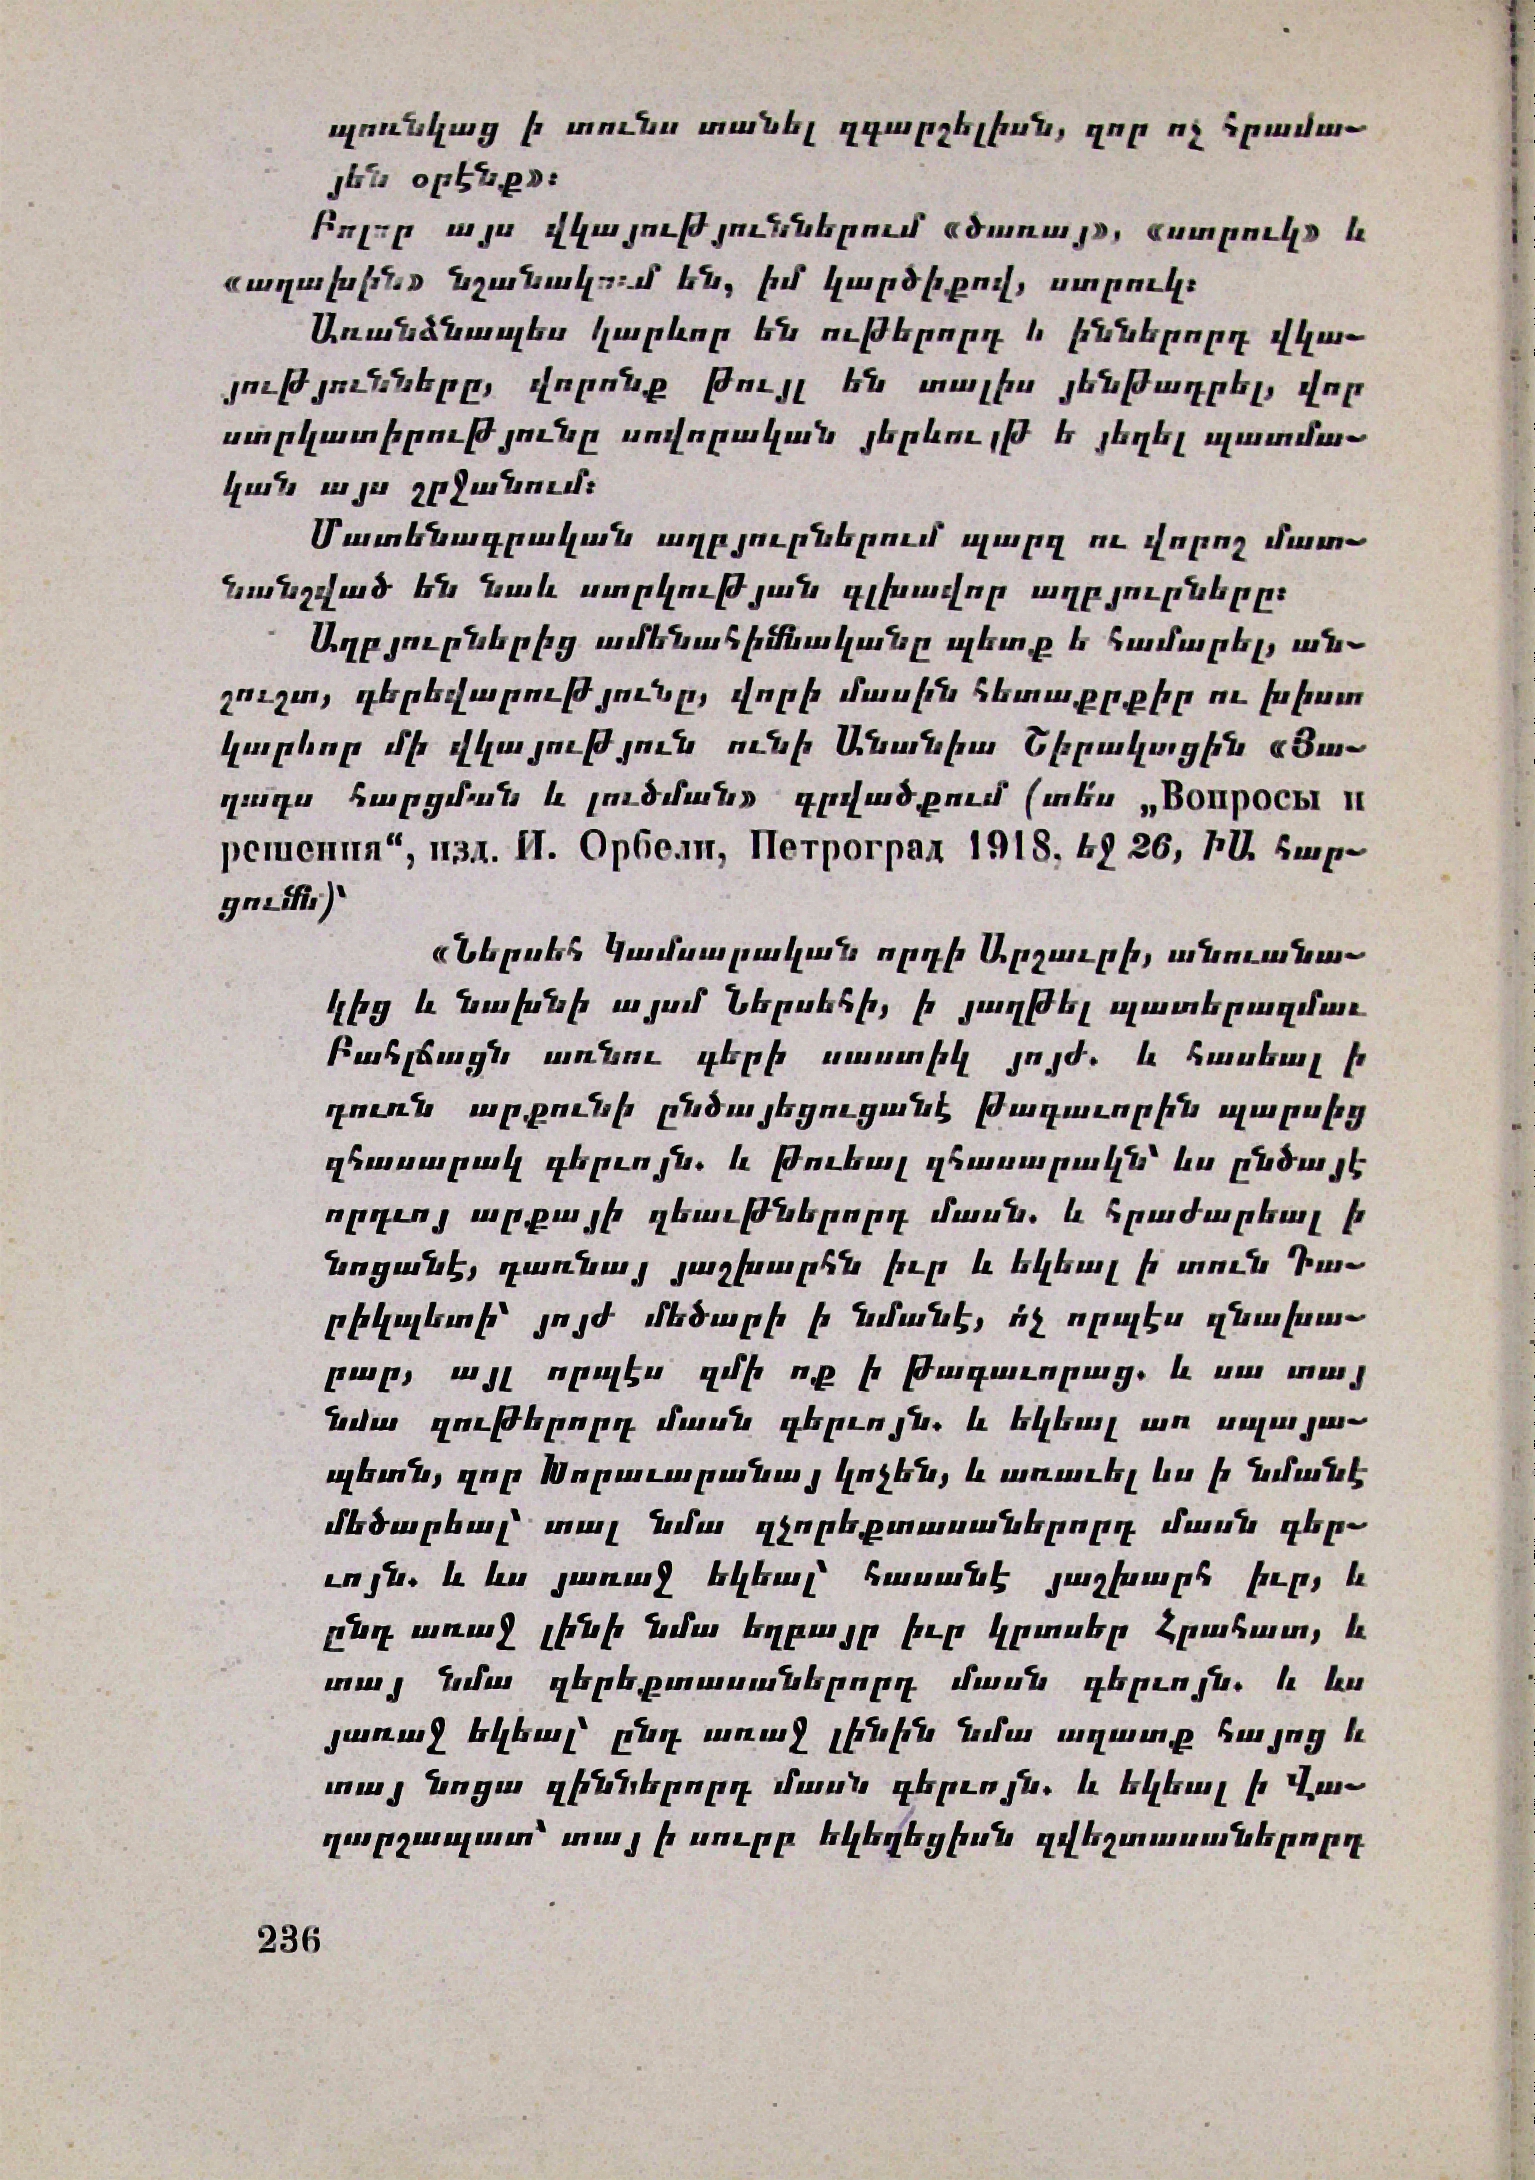 պոռնկաց ի տունս տանել զգարշելիսն, զոր ոչ հրամա-
յեն օրէնք»։
Բոլոր այս վկայություններում «ծառայ», «ստրուկ» և
«աղախին» նշանակում են, իմ կարծիքով, ստրուկ։
Առանձնապես կարևոր են ութերորդ և իններորդ վկա-
յությունները, վորոնք թույլ են տալիս յենթադրել, վոր
ստրկատիրությունը սովորական յերևույթ ե յեղել պատմա-
կան այս շրջանում։
Մատենագրական աղբյուրներում պարզ ու վորոշ մատ-
նանշված են նաև ստրկության գլխավոր աղբյուրները։
Աղբյուրներից ամենահիմնականը պետք ե համարել, ան-
շուշտ, գերեվարությունը, վորի մասին հետաքրքիր ու խիստ
կարևոր մի վկայություն ունի Անանիա Շիրակացին «Յա-
ղագս հարցման և լուծման» գրվածքում (տե՛ս „Вопросы и
решения“, изд. И. Орбели, Петроград 1918, եջ 26, ԻԱ հար-
ցումն)՝
«Ներսեհ Կամսարական որդի Արշաւրի, անուանա-
կից և նախնի այսմ Ներսեհի, ի յաղթել պատերազմաւ
Բահլճացն առնու գերի սաստիկ յոյժ. և հասեալ ի
դուռն արքունի ընծայեցուցանէ թագաւորին պարսից
զհասարակ գերւոյն. և թուեալ զհասարակն՝ ևս ընծայէ
որդւոյ արքայի զեաւթներորդ մասն. և հրաժարեալ ի
նոցանէ, դառնայ յաշխարհն իւր և եկեալ ի տուն Դա-
րիկպետի՝ յոյժ մեծարի ի նմանէ, ո՛չ որպէս զնախա-
րար, այլ որպէս զմի ոք ի թագաւորաց. և սա տայ
նմա զութերորդ մասն գերւոյն. և եկեալ առ սպայա-
պետն, զոր Խորաւարանայ կոչեն, և առաւել ևս ի նմանէ
մեծարեալ՝ տալ նմա զչորեքտասաներորդ մասն գեր-
ւոյն. և ևս յառաջ եկեալ՝ հասանէ յաշխարհ իւր, և
ընդ առաջ լինի նմա եղբայր իւր կրտսեր Հրահատ, և
տայ նմա զերեքտասաներորդ մասն գերւոյն. և ևս
յառաջ եկեալ՝ ընդ առաջ լինին նմա աղատք հայոց և
տայ նոցա զիններորդ մասն գերւոյն. և եկեալ ի Վա-
ղարշապատ՝ տայ ի սուրբ եկեղեցիսն զվեշտասաներորդ
236